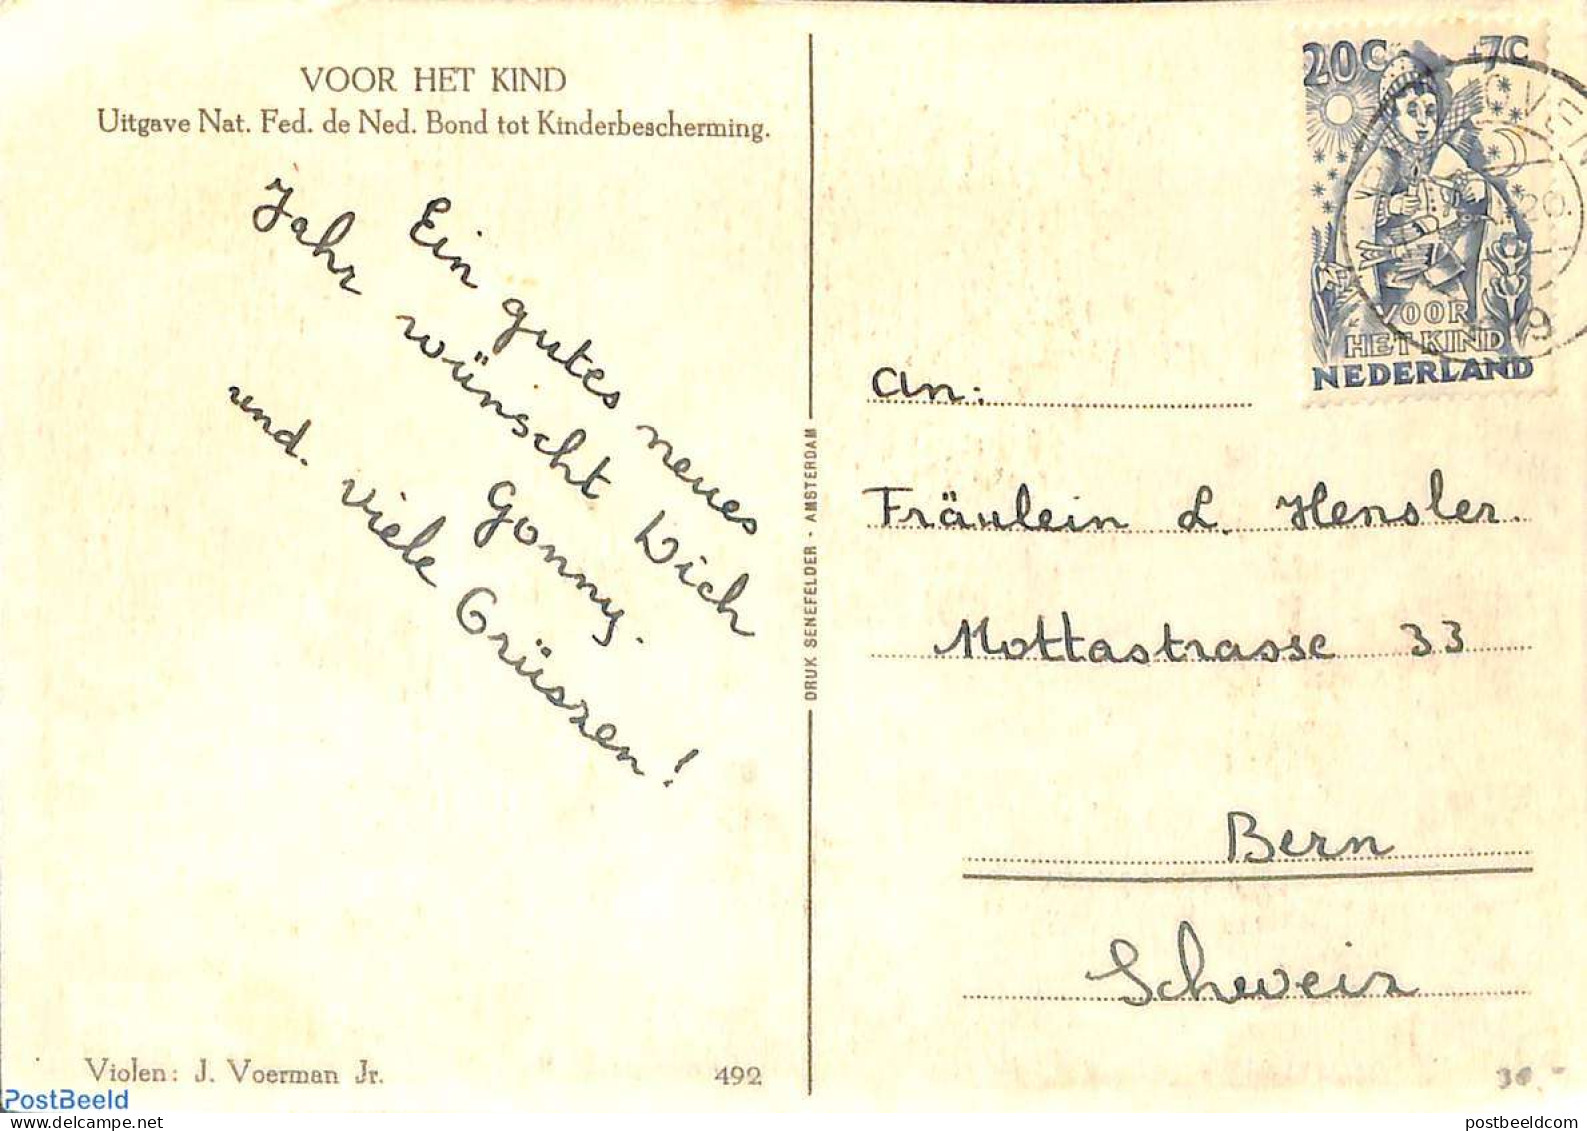 VOOR HET KIND
Uitgave Nat. Fed. de Ned. Bond tot Kinderbescherming.
Ein gutes neues
Jahr wünscht Dich
Gonny.
und. viele Grüszen!
Violen: J. Voerman Jr.
492
DRUK SENEFELDER - AMSTERDAM
20C +7C
VOOR
HET KIND
NEDERLAND
an:
Fräulein L. Hensler.
Mottastrasse 33
Bern
Schweiz
PostBeeld
postbeeldcom